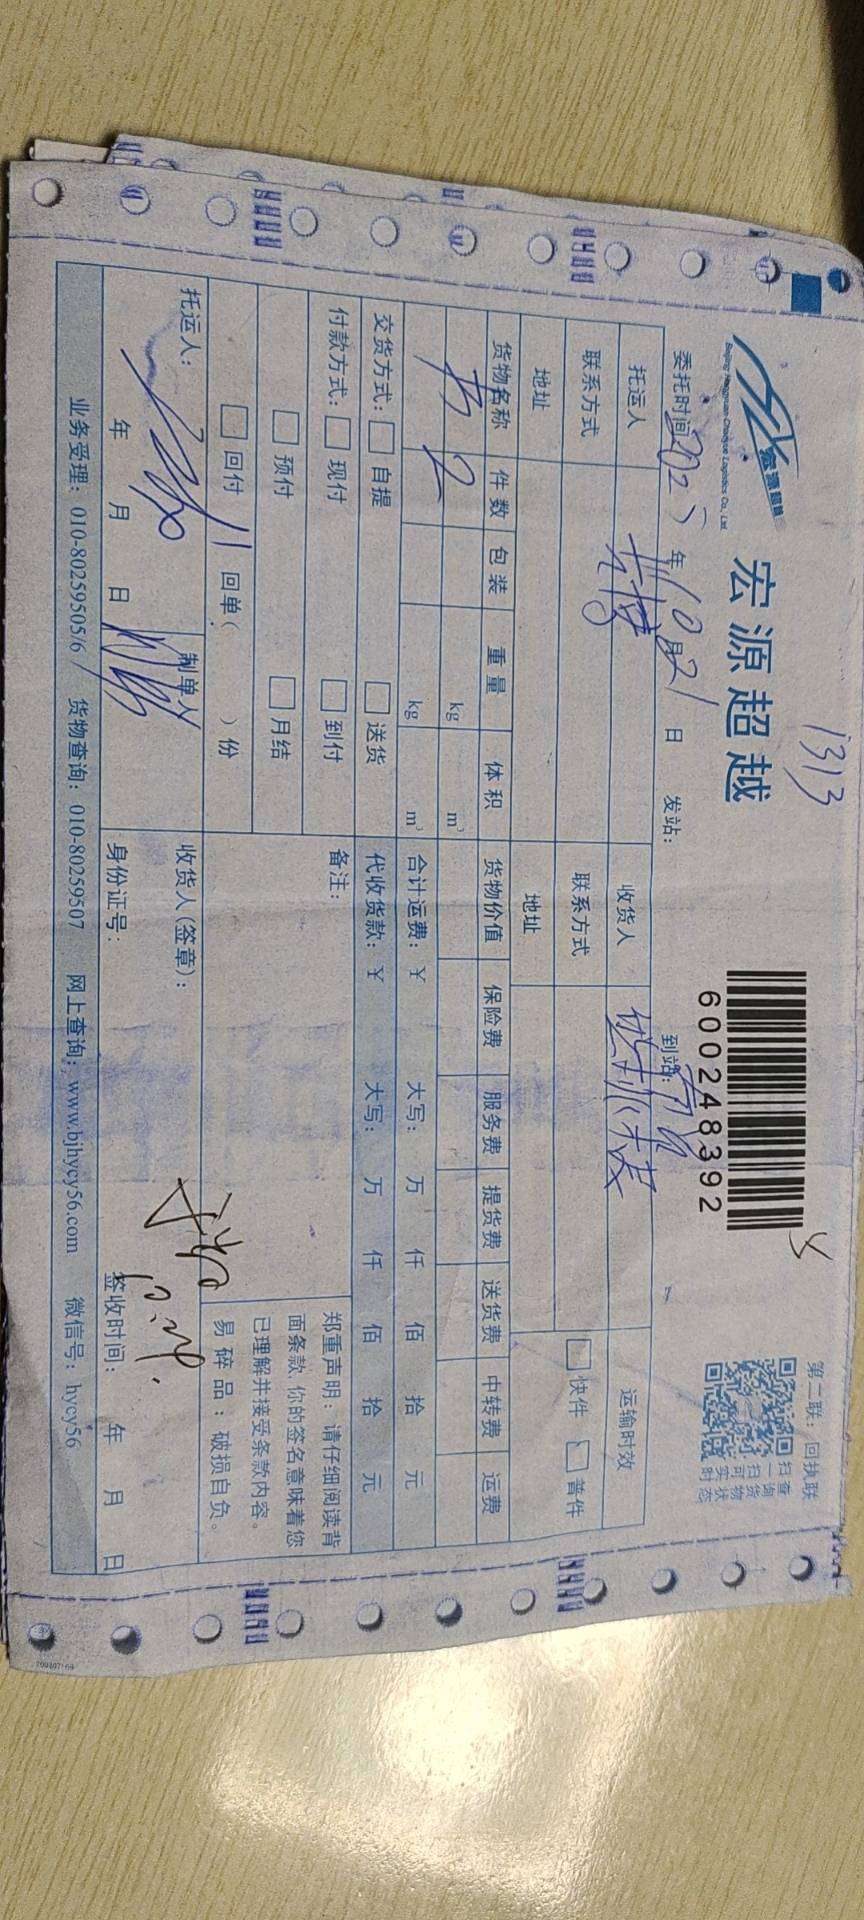 1313
宏源超越
Beijing Hongyuan Chaoyue Logistics Co., Ltd.
宏源超越
6000248392
第二联：回执联
扫一扫 查询货物实时状态
委托时间 年10月21日 发站： 到站：
托运人 收货人 运输时效
联系方式 联系方式 快件 普件
地址 地址
货物名称 件数 包装 重量 体积 货物价值 保险费 服务费 提货费 送货费 中转费 运费
书 2 kg m³
kg m³ 合计运费：¥ 大写： 万 仟 佰 拾 元
交货方式： 自提 送货 代收货款：¥ 大写： 万 仟 佰 拾 元
付款方式： 现付 到付 备注：
预付 月结
回付 回单( )份
郑重声明：请仔细阅读背
面条款，你的签名意味着您
已理解并接受条款内容。
易碎品：破损自负。
托运人： 制单人 收货人(签章)：
年 月 日 身份证号： 签收时间： 年 月 日
业务受理：010-80259505/6 货物查询：010-80259507 网上查询：www.bjhycy56.com 微信号：hycy56